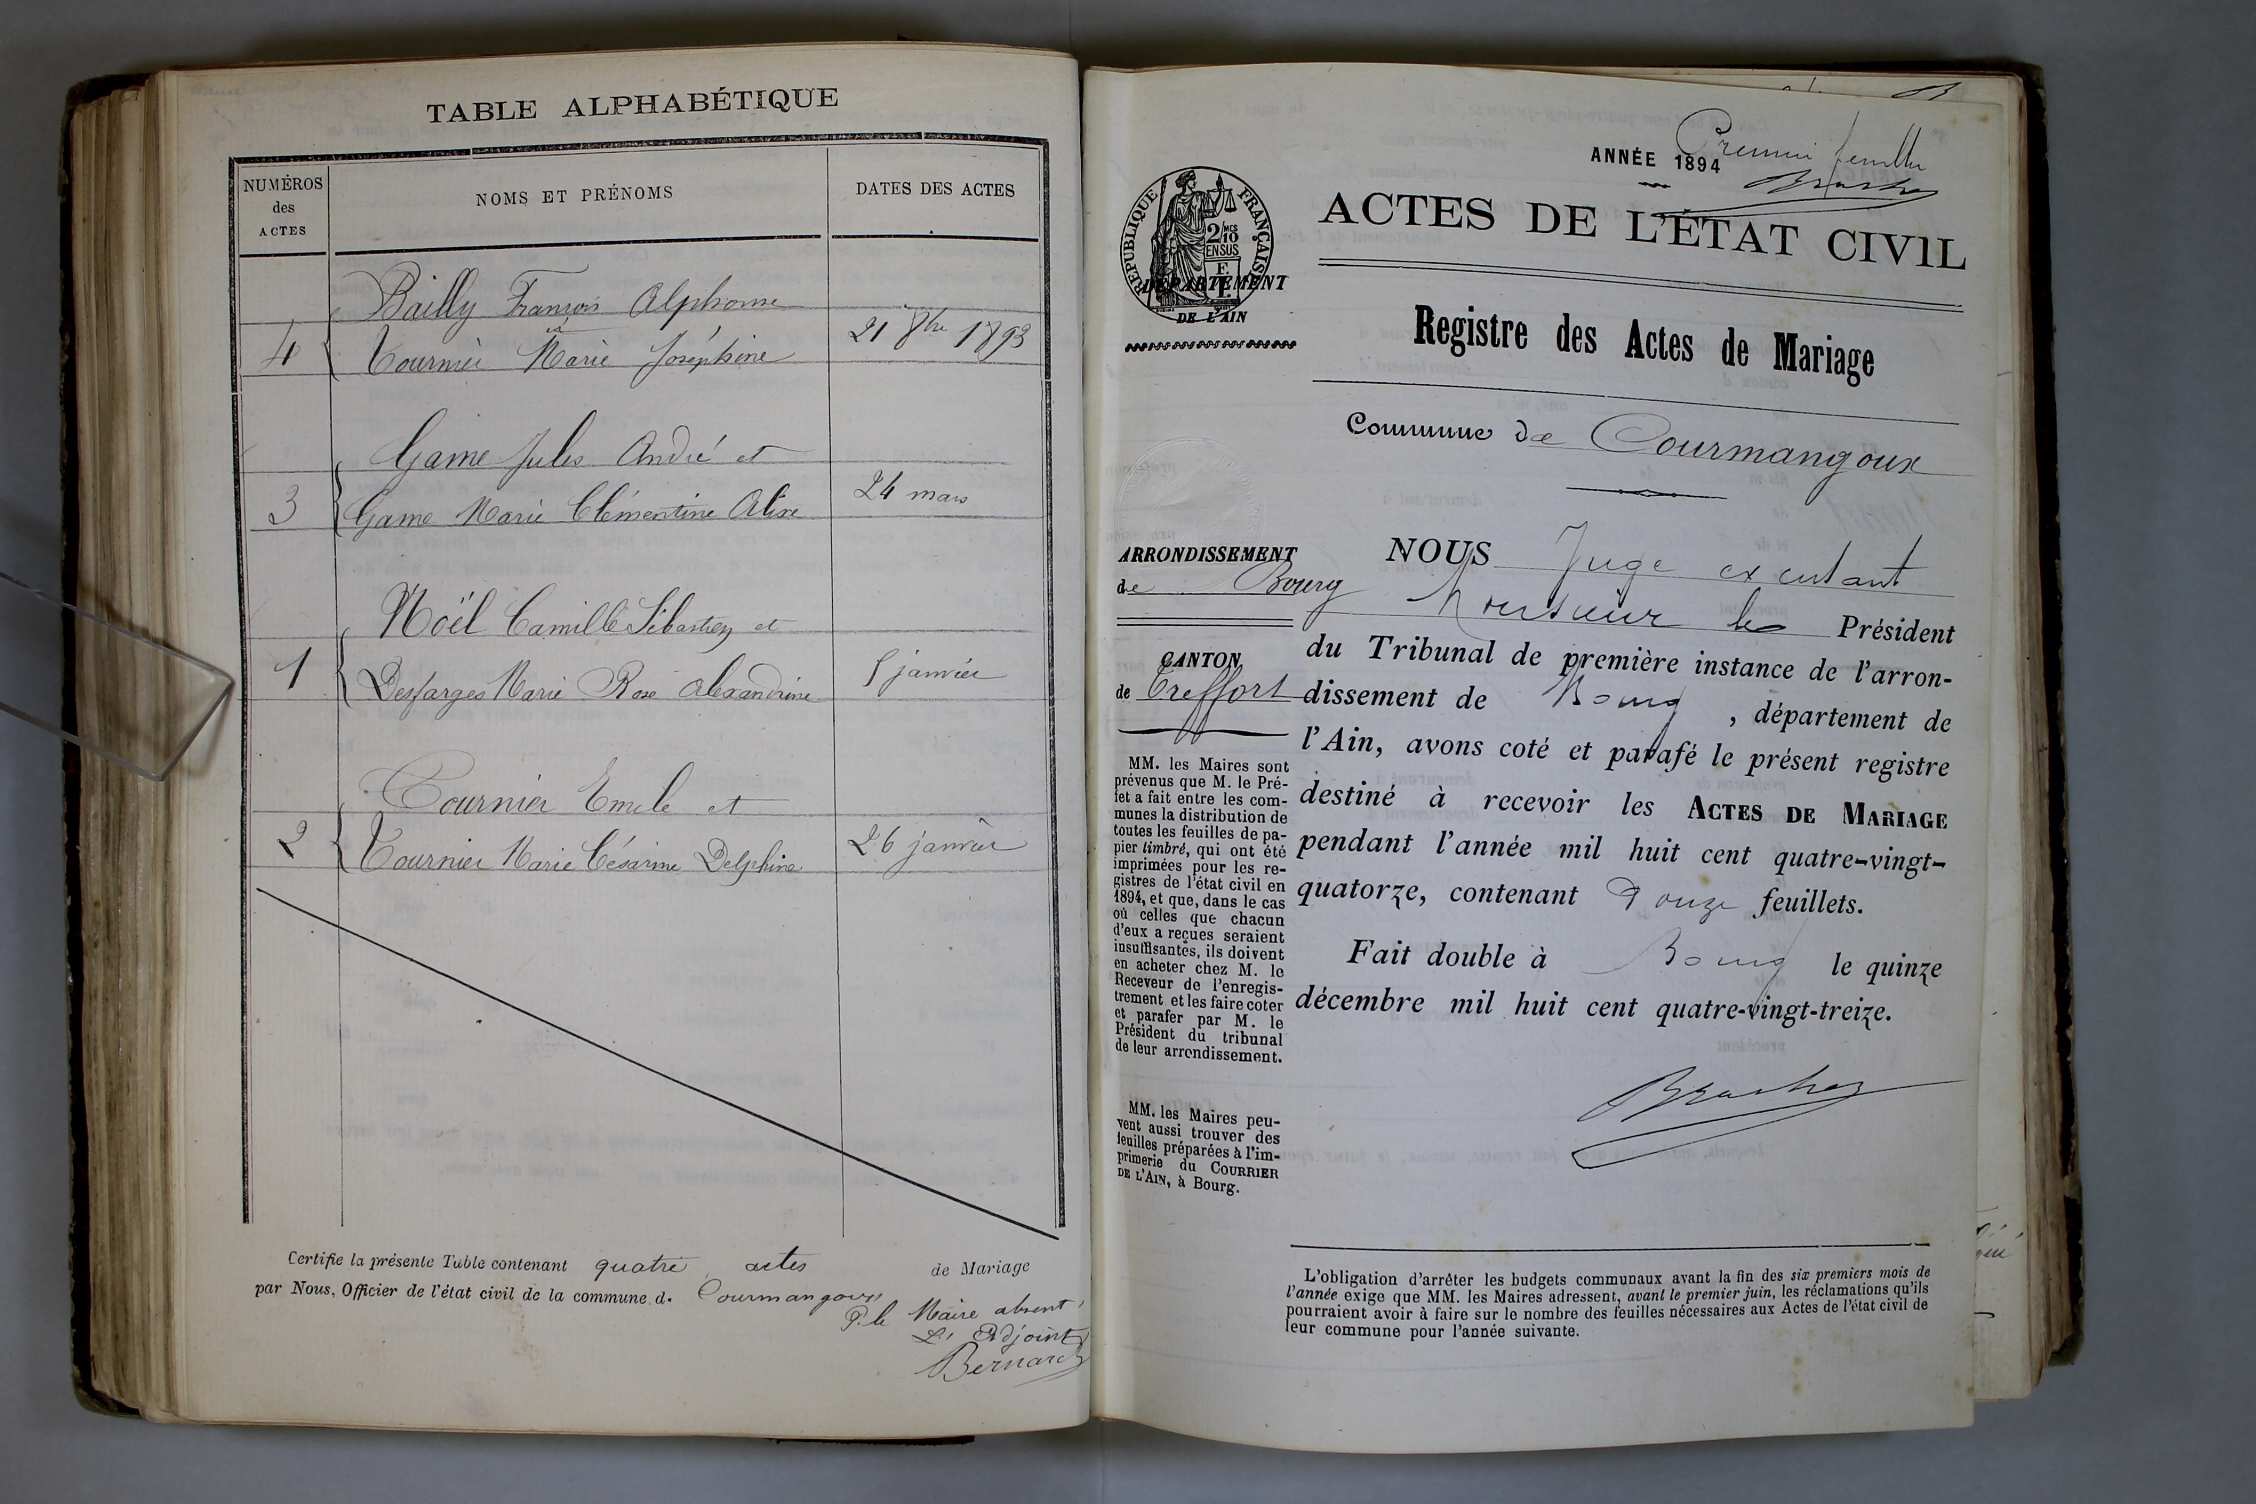 TABLE ALPHABÉTIQUE
NUMÉROS
des
ACTES
NOMS ET PRÉNOMS
DATES DES ACTES
Bailly François Alphonse
et
4
Tournier Marie Joséphine
21 8bre 1893
Game Jules André et
3
Game Marie Clémentine Alix
24 mars
Noël Camille Sébastien et
1
Desfarges Marie Rose Alexandrine
5 janvier
Tournier Emile et
2
Tournier Marie Césarine Delphine
26 janvier
Certifie la présente Table contenant quatre actes de Mariage
par Nous, Officier de l'état civil de la commune d. Courmangoux
P. le Maire absent
L'Adjoint
Bernard
Premier feuillet
ANNÉE 1894
ACTES DE L'ÉTAT CIVIL
RÉPUBLIQUE FRANÇAISE
2/10
EN SUS
DÉPARTEMENT
DE L'AIN
Registre des Actes de Mariage
Commune de Courmangoux
ARRONDISSEMENT
de Bourg
CANTON
de Treffort
MM. les Maires sont
prévenus que M. le Pré-
fet a fait entre les com-
munes la distribution de
toutes les feuilles de pa-
pier timbré, qui ont été
imprimées pour les re-
gistres de l'état civil en
1894, et que, dans le cas
où celles que chacun
d'eux a reçues seraient
insuffisantes, ils doivent
en acheter chez M. le
Receveur de l'enregis-
trement et les faire coter
et parafer par M. le
Président du tribunal
de leur arrondissement.
MM. les Maires peu-
vent aussi trouver des
feuilles préparées à l'im-
primerie du COURRIER
DE L'AIN, à Bourg.
NOUS Juge
Monsieur le Président
du Tribunal de première instance de l'arron-
dissement de Bourg, département de
l'Ain, avons coté et parafé le présent registre
destiné à recevoir les ACTES DE MARIAGE
pendant l'année mil huit cent quatre-vingt-
quatorze, contenant Douze feuillets.
Fait double à Bourg le quinze
décembre mil huit cent quatre-vingt-treize.
L'obligation d'arrêter les budgets communaux avant la fin des six premiers mois de
l'année exige que MM. les Maires adressent, avant le premier juin, les réclamations qu'ils
pourraient avoir à faire sur le nombre des feuilles nécessaires aux Actes de l'état civil de
leur commune pour l'année suivante.